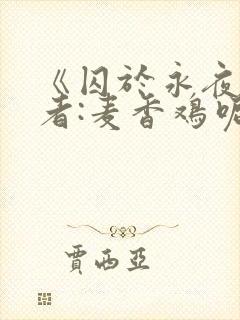 《囚於永夜
者:麦香鸡呢
贾西亞